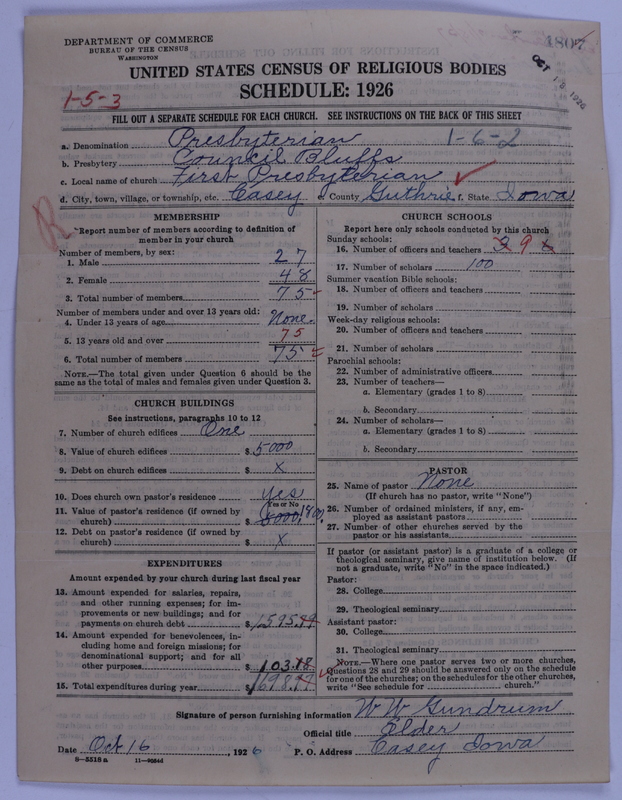 DEPARTMENT OF COMMERCE
BUREAU OF THE CENSUS
WASHINGTON
4807
OCT 18 1926
UNITED STATES CENSUS OF RELIGIOUS BODIES
SCHEDULE: 1926
1-5-3
FILL OUT A SEPARATE SCHEDULE FOR EACH CHURCH. SEE INSTRUCTIONS ON THE BACK OF THIS SHEET
a. Denomination Presbyterian 1-6-2
b. Presbytery Council Bluffs
c. Local name of church First Presbyterian
d. City, town, village, or township, etc. Casey e. County Guthrie f. State Iowa
R
MEMBERSHIP
Report number of members according to definition of
member in your church
Number of members, by sex:
1. Male 27
2. Female 48
3. Total number of members 75
Number of members under and over 13 years old:
4. Under 13 years of age None
5. 13 years old and over 75
6. Total number of members 75
NOTE.—The total given under Question 6 should be the
same as the total of males and females given under Question 3.
CHURCH BUILDINGS
See instructions, paragraphs 10 to 12
7. Number of church edifices One
8. Value of church edifices $ 5000
9. Debt on church edifices $ x
10. Does church own pastor's residence Yes
(Yes or No)
11. Value of pastor's residence (if owned by
church) $ 5000 1800
12. Debt on pastor's residence (if owned by
church) $ x
EXPENDITURES
Amount expended by your church during last fiscal year
13. Amount expended for salaries, repairs,
and other running expenses; for im-
provements or new buildings; and for
payments on church debt $ 1595.
14. Amount expended for benevolences, in-
cluding home and foreign missions; for
denominational support; and for all
other purposes $ 103.18
15. Total expenditures during year $ 1698.
CHURCH SCHOOLS
Report here only schools conducted by this church
Sunday schools:
16. Number of officers and teachers 9
17. Number of scholars 100
Summer vacation Bible schools:
18. Number of officers and teachers
19. Number of scholars
Week-day religious schools:
20. Number of officers and teachers
21. Number of scholars
Parochial schools:
22. Number of administrative officers
23. Number of teachers—
a. Elementary (grades 1 to 8)
b. Secondary
24. Number of scholars—
a. Elementary (grades 1 to 8)
b. Secondary
PASTOR
25. Name of pastor None
(If church has no pastor, write "None")
26. Number of ordained ministers, if any, em-
ployed as assistant pastors
27. Number of other churches served by the
pastor or his assistants
If pastor (or assistant pastor) is a graduate of a college or
theological seminary, give name of institution below. (If
not a graduate, write "No" in the space indicated.)
Pastor:
28. College
29. Theological seminary
Assistant pastor:
30. College
31. Theological seminary
NOTE.—Where one pastor serves two or more churches,
Questions 28 and 29 should be answered only on the schedule
for one of the churches; on the schedules for the other churches,
write "See schedule for church."
Signature of person furnishing information W W Gundrum
Official title Elder
Date Oct 16, 1926 P. O. Address Casey Iowa
8—5518a 11—9034d